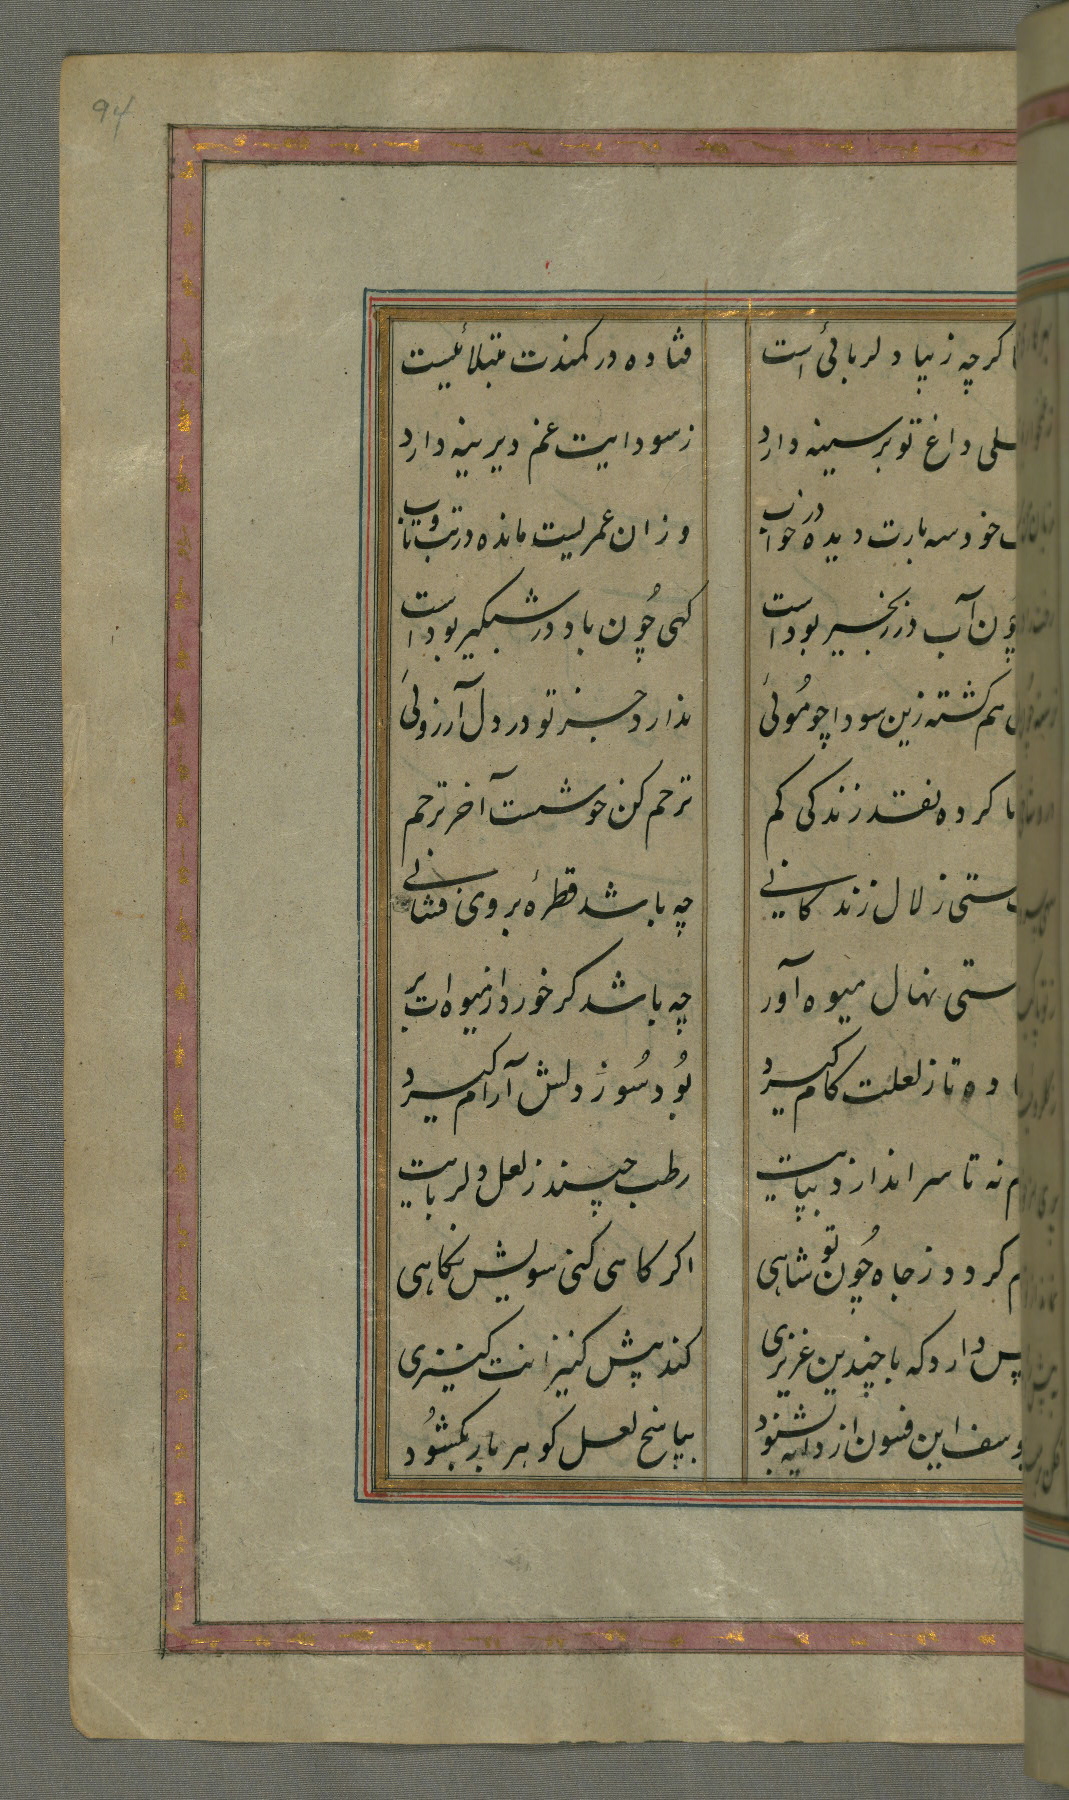 94
کرچه زیبا دلربائی است فتاده در کمندت مبتلائیست
داغ تو بر سینه دارد زسودایت غم دیرینه دارد
خود سه بارت دیده در خواب وزان عمریست مانده در تب و تاب
چون آب در زنجیر بوداست کهی چون باد در شبکیر بوداست
هم کشته زین سودا چو موئی ندارد جز تو در دل آرزوئی
کرده نقد زندکی کم ترحم کن خوشست آخر ترحم
زلال زندکانی چه باشد قطرهٔ بر وی فشانی
نهال میوه آور چه باشد کر خورد از میوه ات بر
ده تا ز لعلت کام کیرد بود سوز دلش آرام کیرد
نه تا سر اندازد بپایت رطب چیند ز لعل دلربایت
کردد ز جاه چون تو شاهی اکر کاهی کنی سویش نکاهی
دارد که با چندین عزیزی کند پیش کنیزانت کنیزی
این فسون از دایه بشنود بپاسخ لعل کوهر بار بکشود